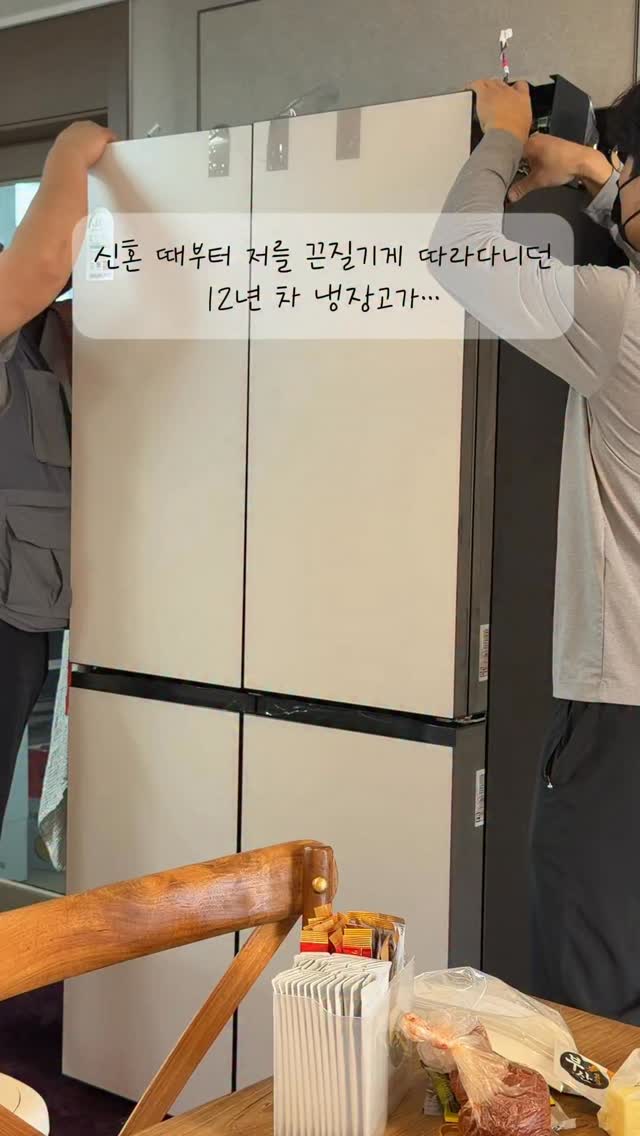 신혼 때부터 저를 끈질기게 따라다니던
12년 차 냉장고가...
부산